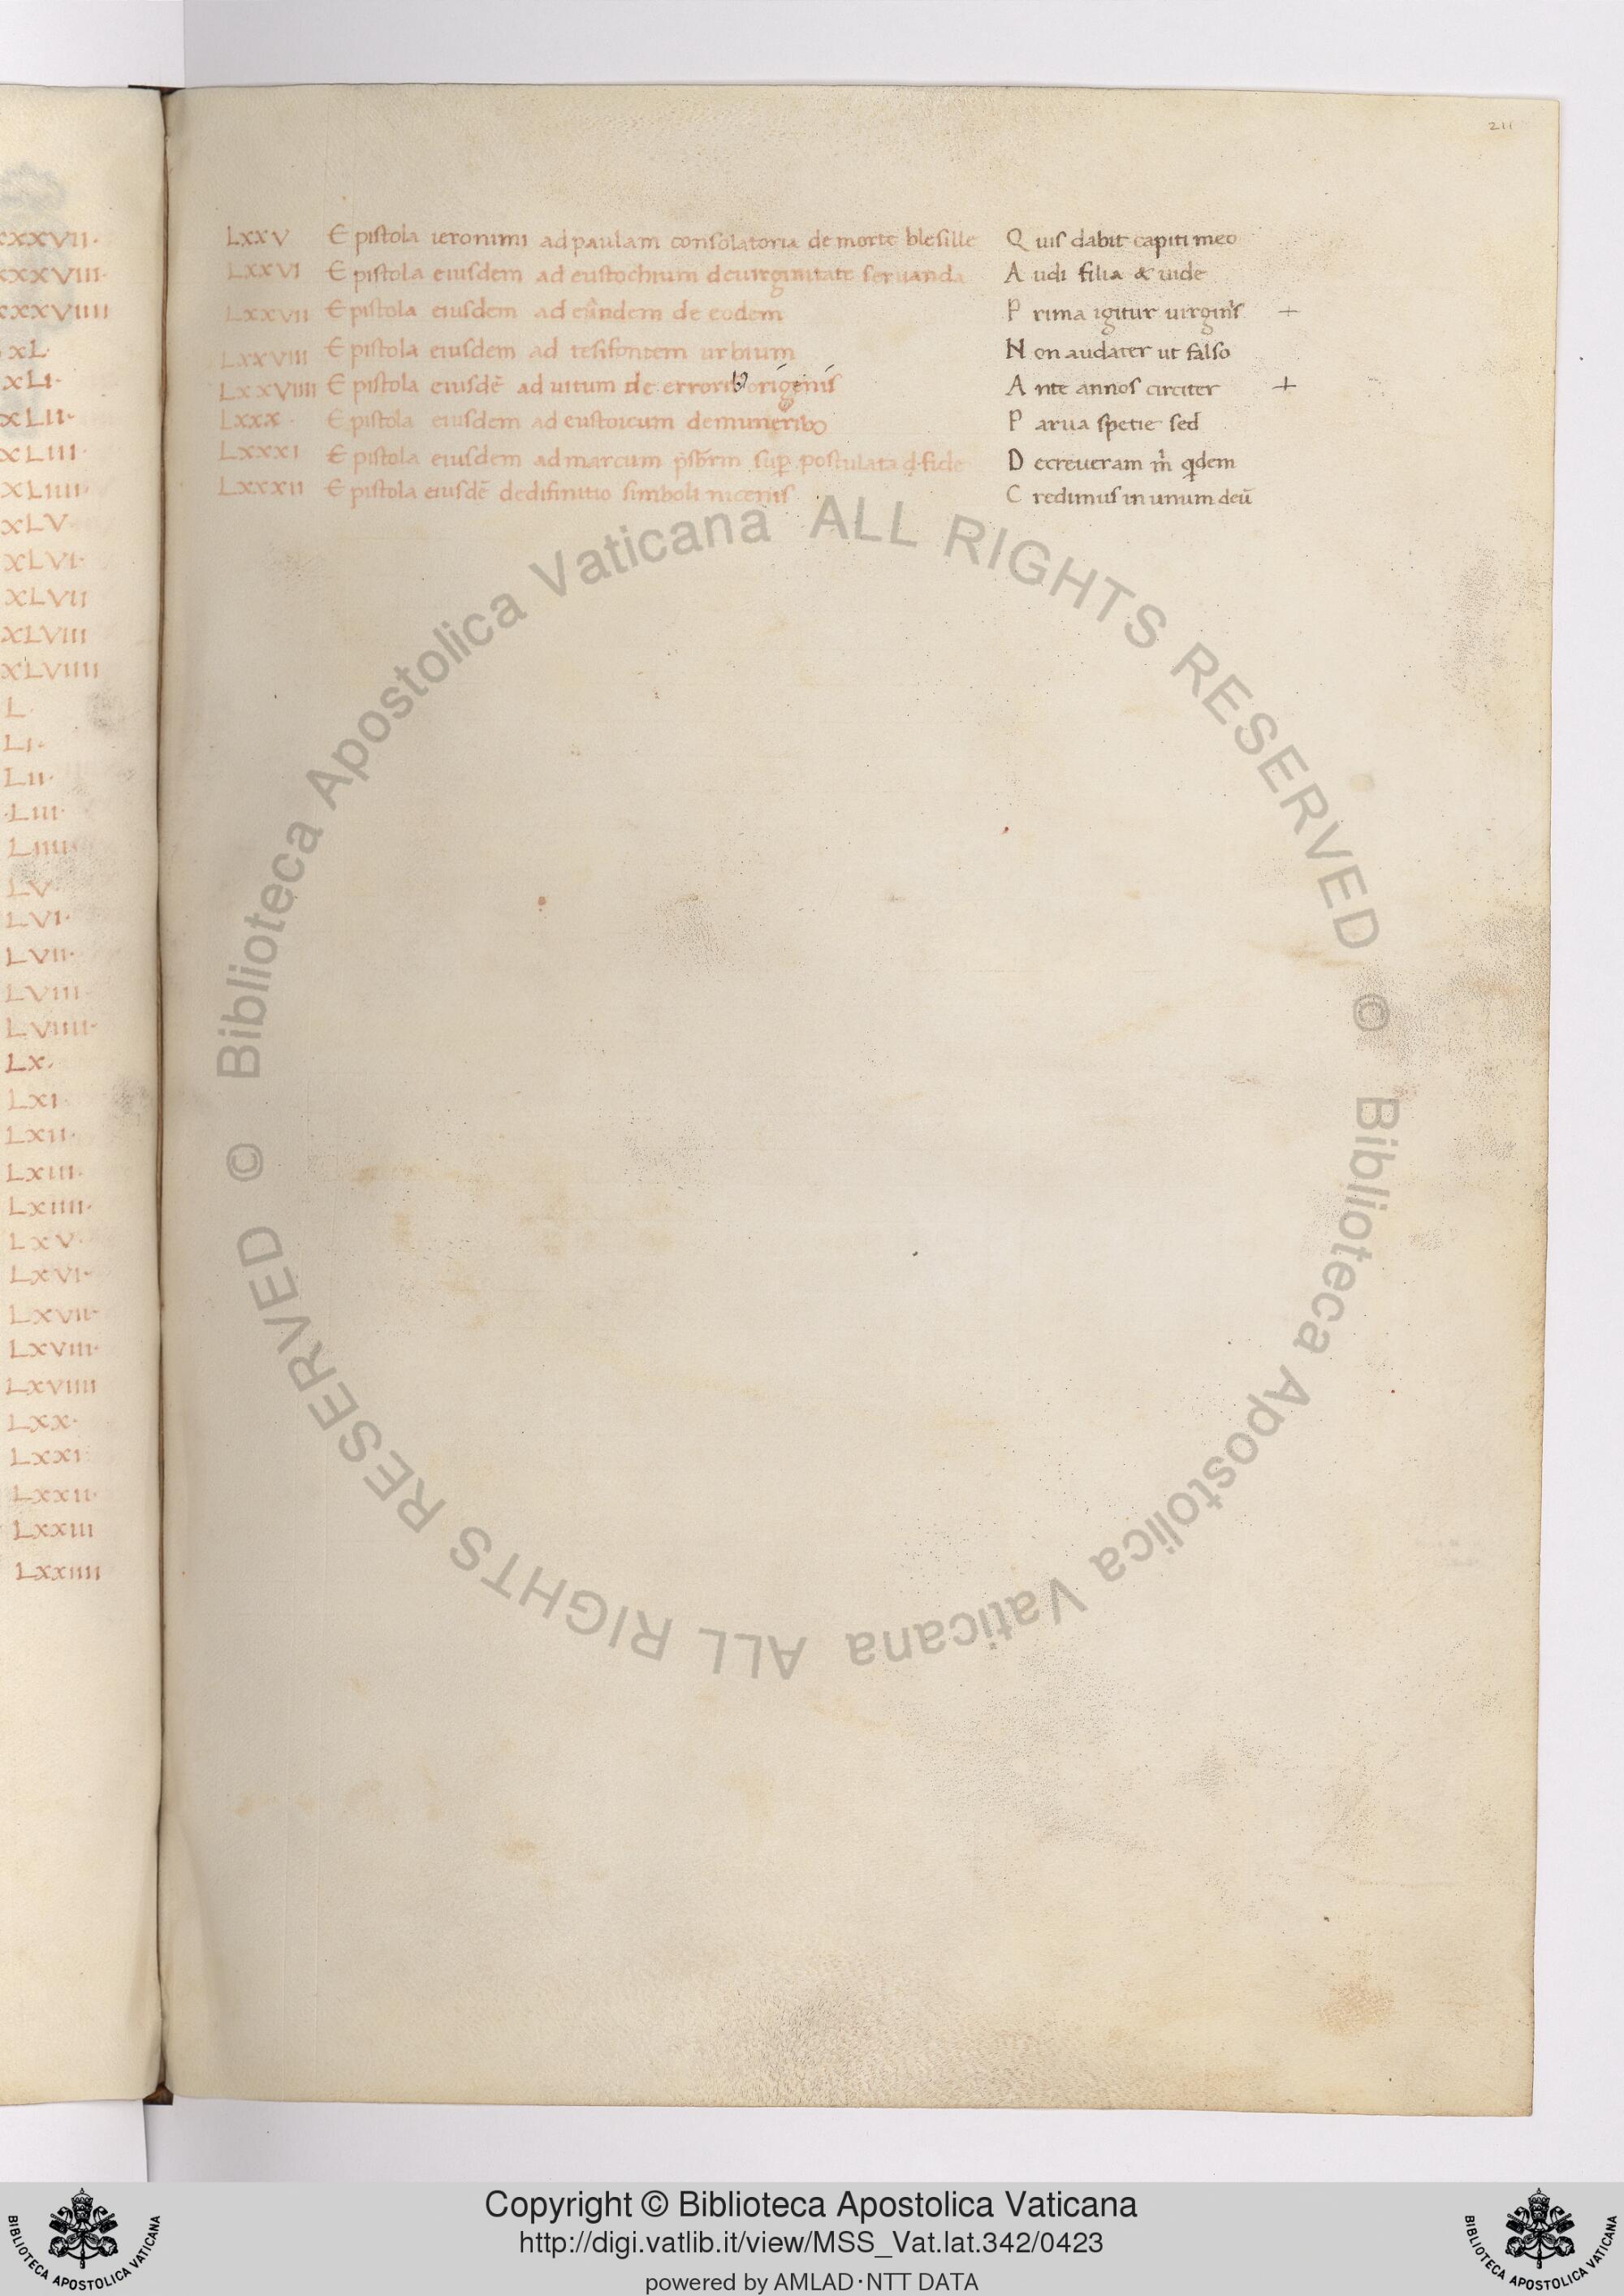 211
LXXV Epistola ieronimi ad paulam consolatoria de morte blesille Quis dabit capiti meo
LXXVI Epistola eiusdem ad eustochium deuirginitate seruanda Audi filia & uide
LXXVII Epistola eiusdem ad eandem de eodem Prima igitur uirginis +
LXXVIII Epistola eiusdem ad tesifontem urbium Non audater ut falso
LXXVIIII Epistola eiusdē ad uitum de errorib; origenis Ante annos circiter +
LXXX · Epistola eiusdem ad eustoicum demunerib; Parua spetie sed
LXXXI Epistola eiusdem admarcum p̄sb̄rm sup̄ postulata d̵ fide Decreueram m̄ qdem
LXXXII Epistola eiusdē dedifinitio simboli niceniis Credimus in unum deū
XXXVII·
XXXVIII·
XXXVIIII
XL·
XLI·
XLII·
XLIII·
XLIIII·
XLV·
XLVI·
XLVII
XLVIII
XLVIIII
L·
LI·
LII·
·LIII·
LIIII·
LV·
LVI·
LVII·
LVIII·
LVIIII·
LX·
LXI
LXII·
LXIII·
LXIIII·
LXV·
LXVI·
LXVII·
LXVIII·
LXVIIII
LXX·
LXXI
LXXII·
LXXIII
LXXIIII
© Biblioteca Apostolica Vaticana ALL RIGHTS RESERVED
© Biblioteca Apostolica Vaticana ALL RIGHTS RESERVED
Copyright © Biblioteca Apostolica Vaticana
http://digi.vatlib.it/view/MSS_Vat.lat.342/0423
powered by AMLAD·NTT DATA
BIBLIOTECA APOSTOLICA VATICANA
BIBLIOTECA APOSTOLICA VATICANA